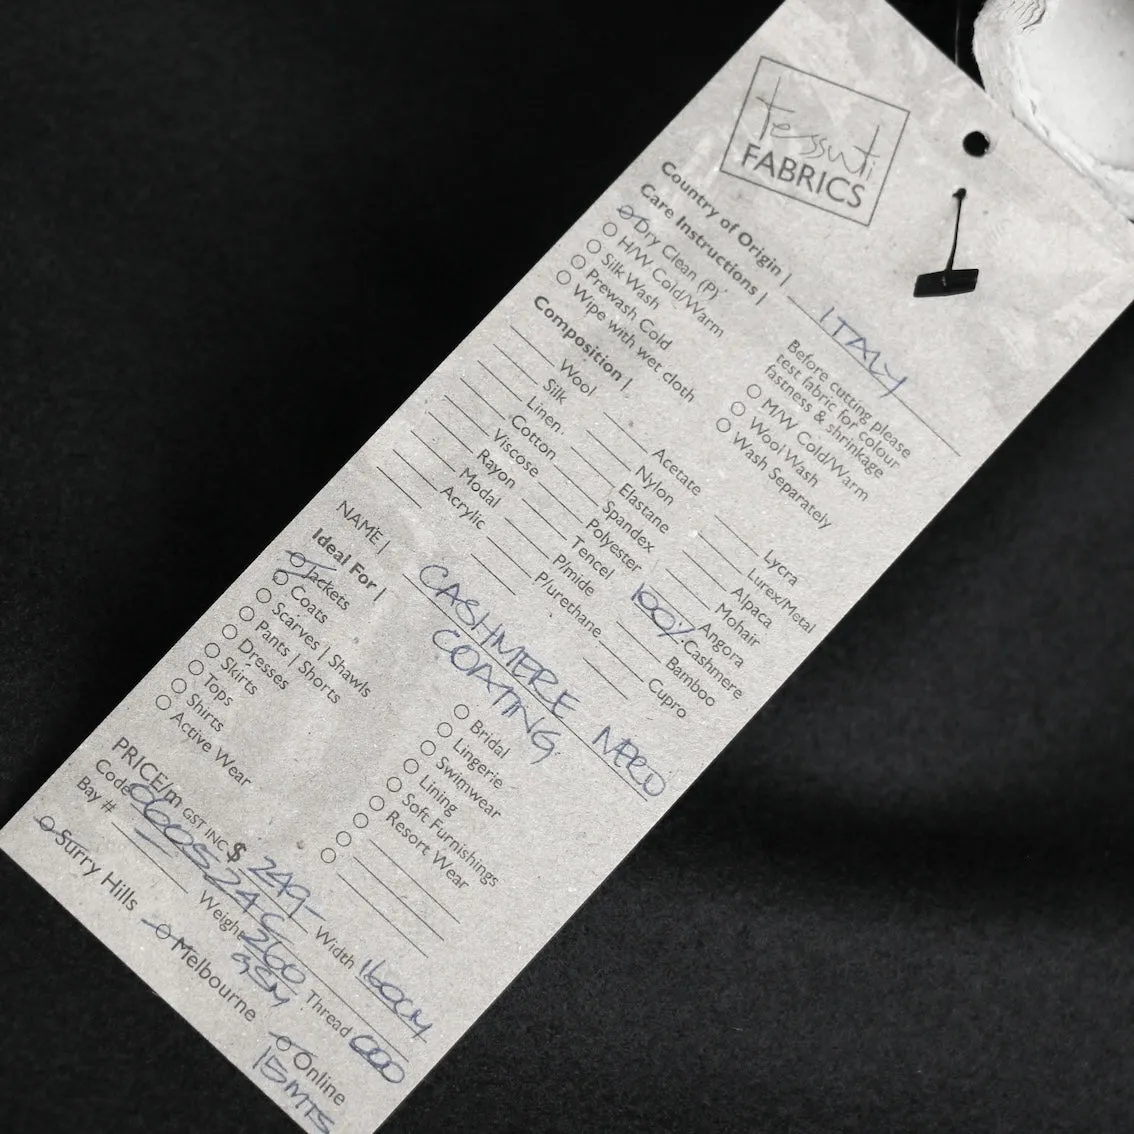 tessuti
FABRICS
Country of Origin | ITALY
Care Instructions |
Dry Clean (P)
H/W Cold/Warm
Silk Wash
Prewash Cold
Wipe with wet cloth
Before cutting please
test fabric for colour
fastness & shrinkage
M/W Cold/Warm
Wool Wash
Wash Separately
Composition |
Wool
Silk
Linen
Cotton
Viscose
Rayon
Modal
Acrylic
Acetate
Nylon
Elastane
Spandex
Polyester
Tencel
P/mide
P/urethane
Lycra
Lurex/Metal
Alpaca
Mohair
Angora
100% Cashmere
Bamboo
Cupro
NAME | CASHMERE NERO
COATING
Ideal For |
Jackets
Coats
Scarves | Shawls
Pants | Shorts
Dresses
Skirts
Tops
Shirts
Active Wear
Bridal
Lingerie
Swimwear
Lining
Soft Furnishings
Resort Wear
PRICE/m GST INC $ 249- Width 160CM
Code Weight 260 GSM Thread
Bay #
Surry Hills
Melbourne
Online
15MTS